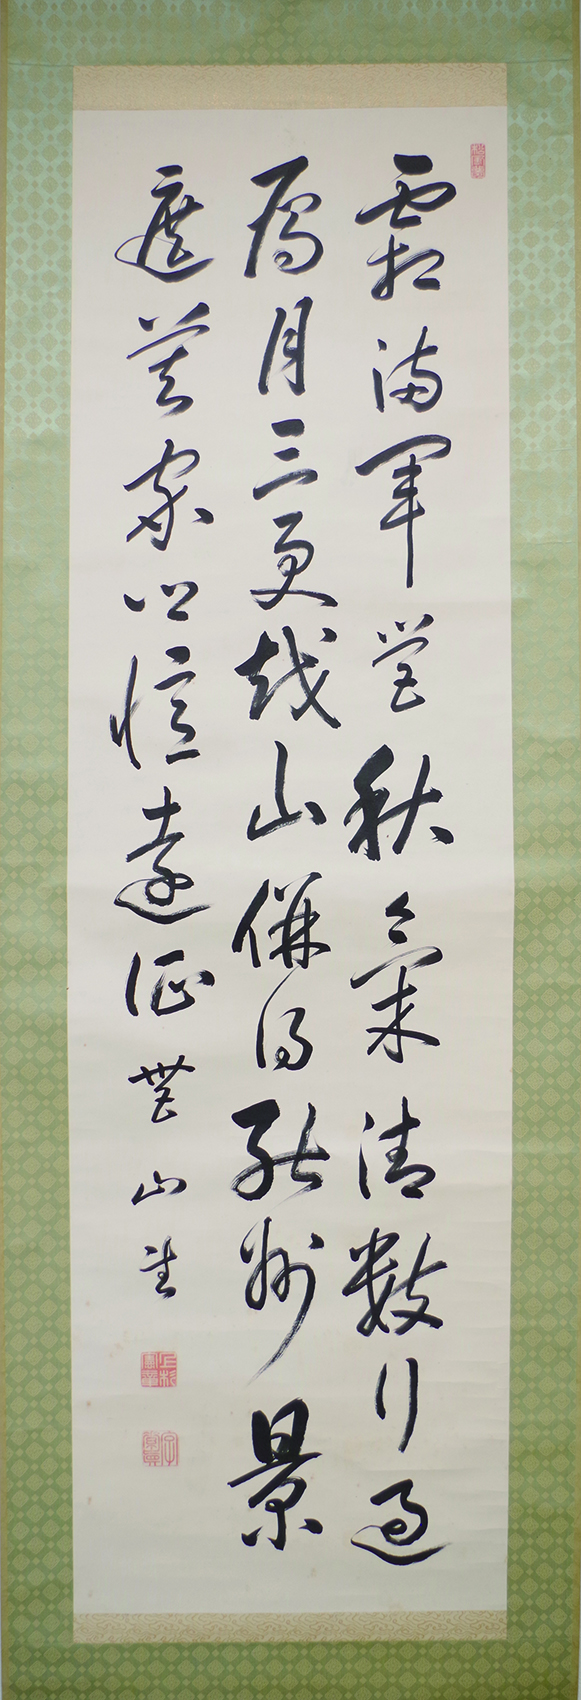 霜満軍営秋氣清数行過
雁月三更越山併得能州景
遮莫家郷憶遠征 山